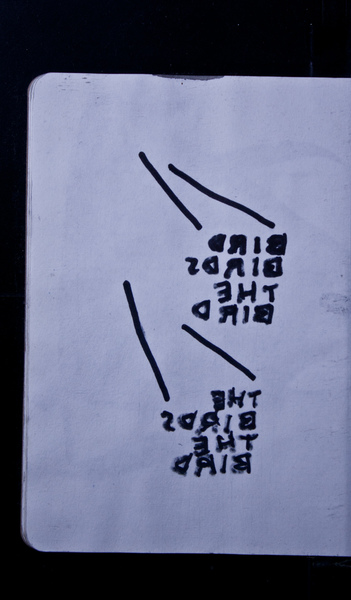 BIRD
BIRDS
THE
BIRD
THE
BIRDS
THE
BIRD